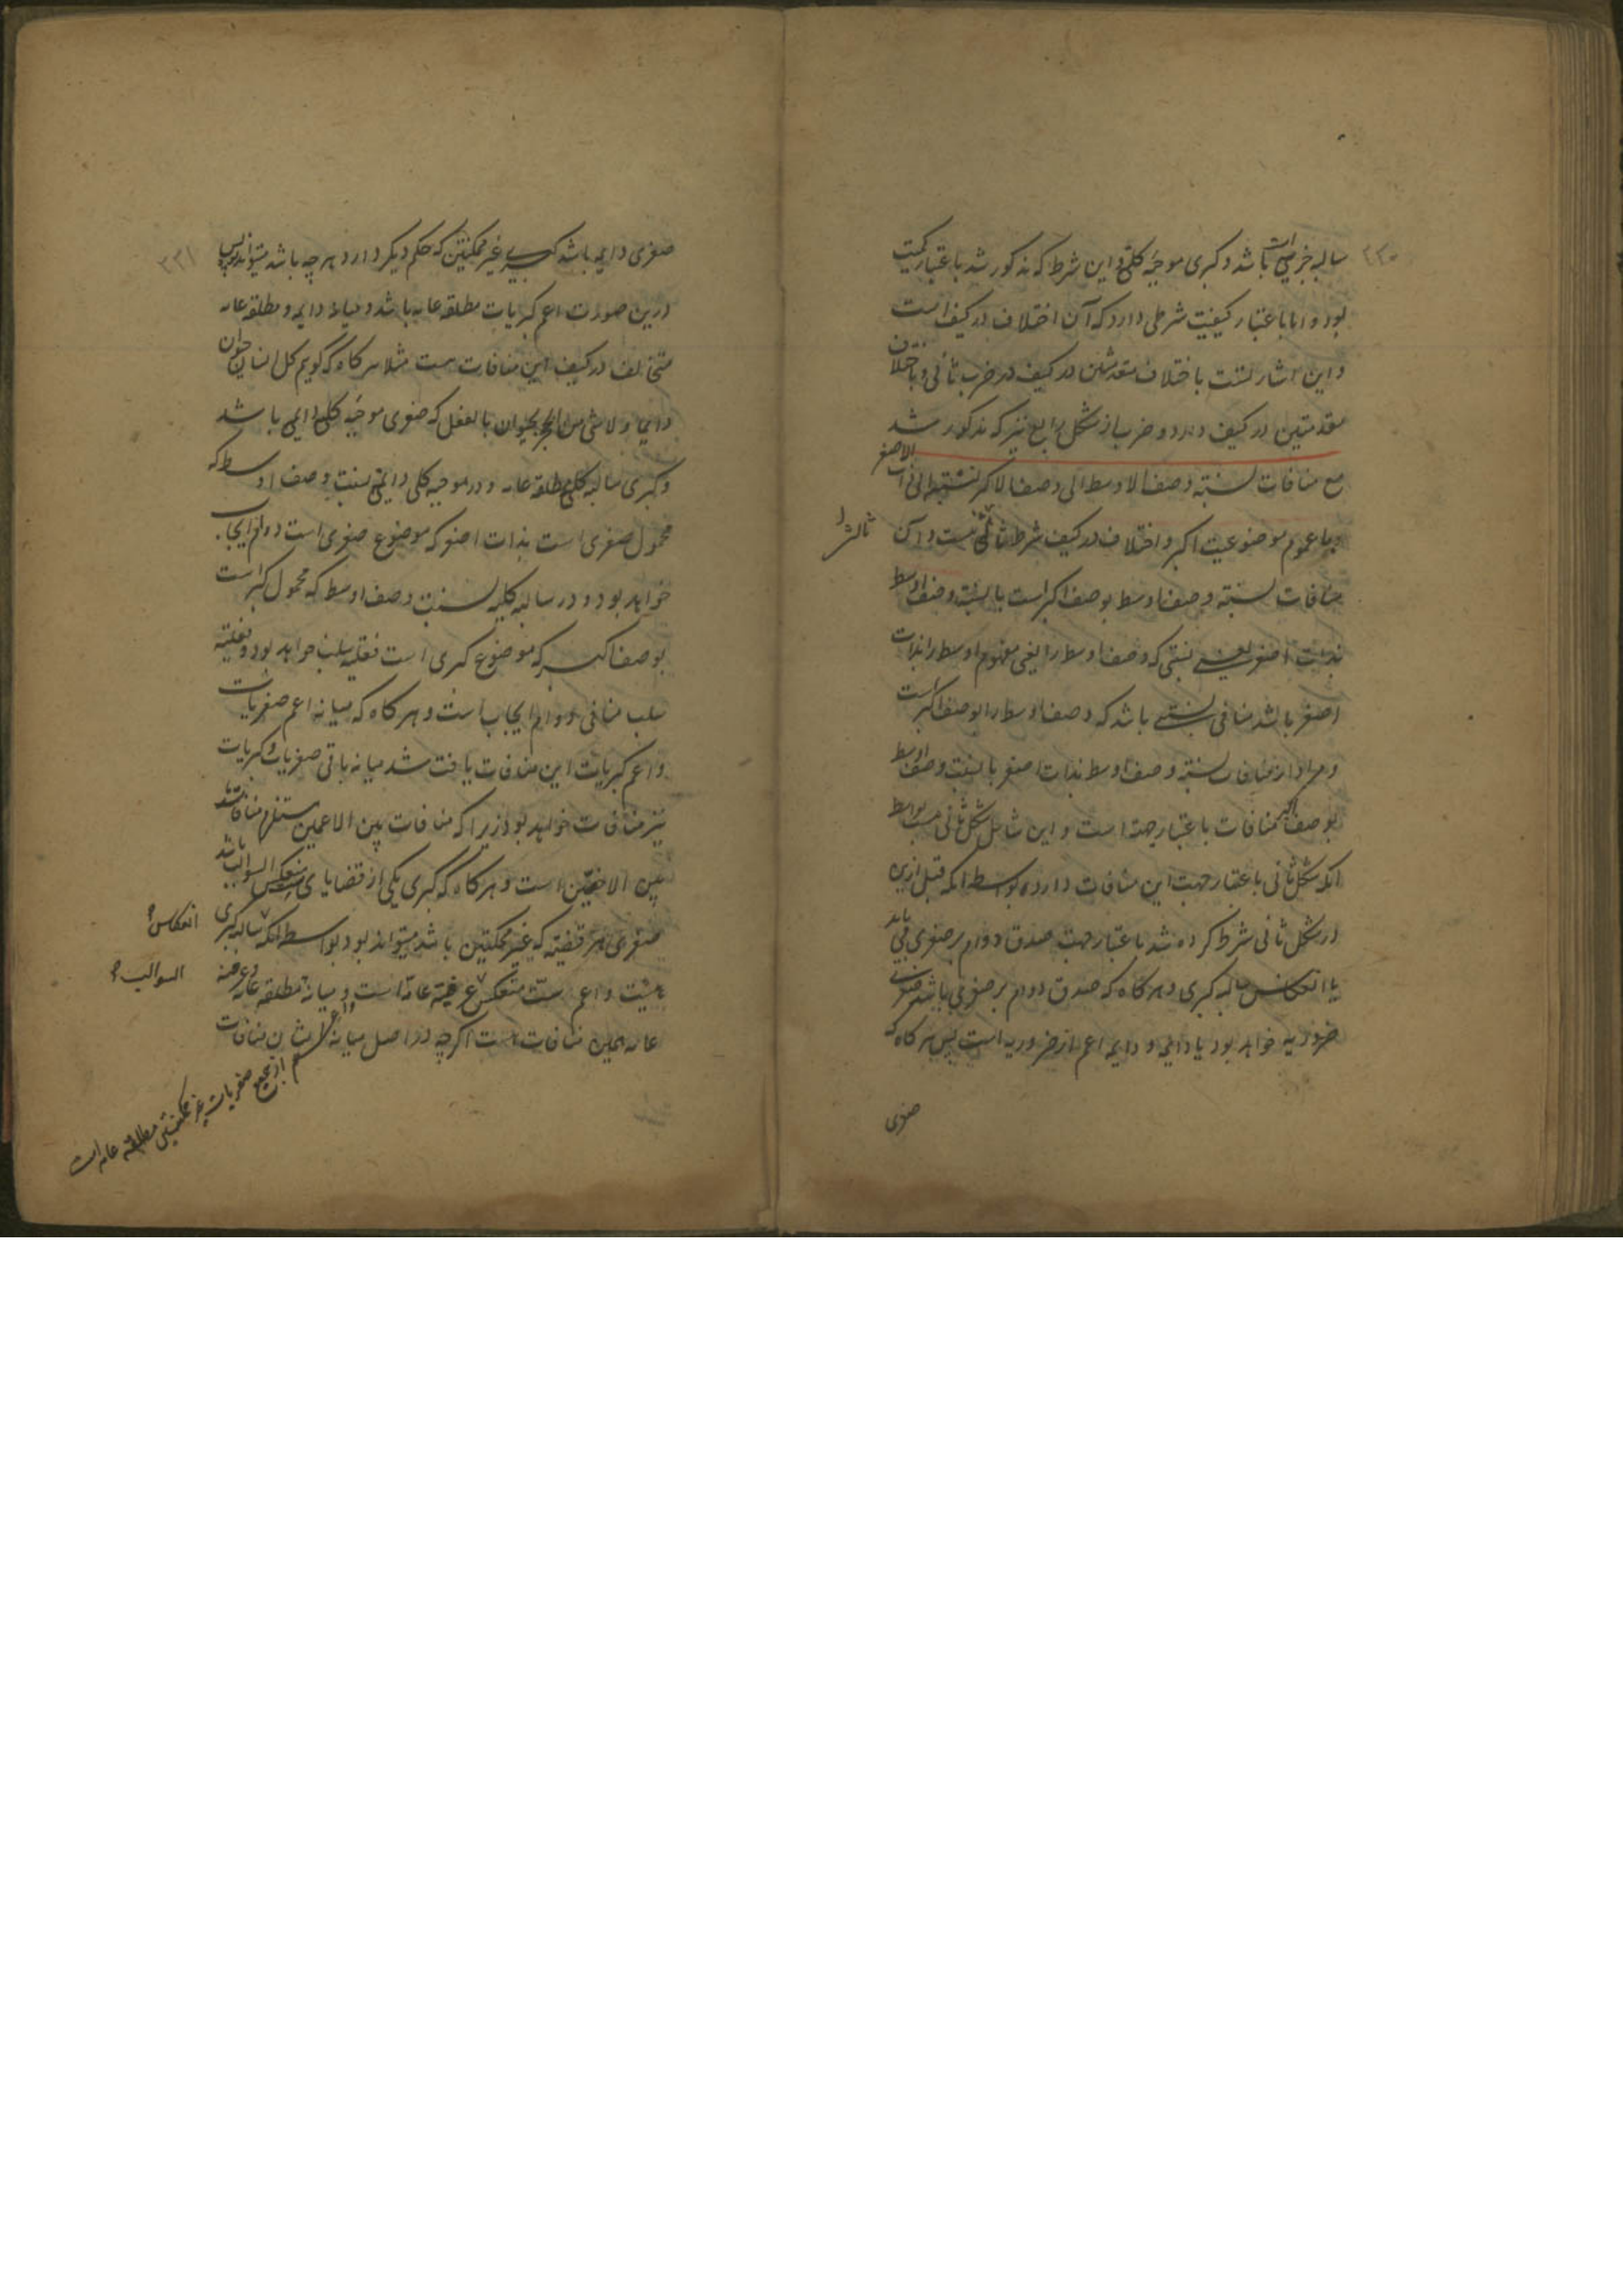 ٢٢٠
سالبه جزئیه باشد و کبری موجبه کلیه و این شرط که مذکور شد باعتبار کمیت
بود و اما باعتبار کیفیت شرطی دارد که آن اختلاف در کیف است
و این اشارتست باختلاف مقدمتین در کیف در ضرب ثانی و باختلاف
مقدمتین در کیف در دو ضرب از شکل رابع نیز که مذکور شد
مع منافات نسبته وصف الاوسط الی وصف الاکبر لنسبته الی ذات الاصغر
و با عموم موضوعیت اکبر و اختلاف در کیف شرط است و آن
ثالث را
منافات نسبته وصف اوسط بوصف اکبر است با نسبته وصف اوسط
بذات اصغر یعنی نسبتی که وصف اوسط را یعنی مفهوم اوسط را بذات
اصغر باشد منافی نسبتی باشد که وصف اوسط را بوصف اکبر است
و مراد از منافات نسبته وصف اوسط بذات اصغر با نسبت وصف اوسط
بوصف اکبر منافات باعتبار جهت است و این شامل شکل ثانی است بواسطه
آنکه شکل ثانی باعتبار جهت این منافات دارد بواسطه آنکه قبل ازین
در شکل ثانی شرط کرده شد باعتبار جهت صدق دوام بر صغری می باید
یا انعکاس سالبه کبری و هرگاه که صدق دوام بر صغری باشد صغری
ضروریه خواهد بود یا دائمه و دایمه اعم از ضروریه است پس هرگاه که
صغری
٢٢١
صغری دایمه باشد کبری غیر ممکنتین که حکم دیگر دارد هر چه باشد میتواند بود پس
درین صورت اعم کبریات مطلقه عامه باشد و میانه دایمه و مطلقه عامه
متخالف در کیف این منافات هست مثلا هرگاه که گویم کل انسان حیوان
دایما و لا شی من الحجر بحیوان بالفعل که صغری موجبه کلیه دایمه باشد
و کبری سالبه کلیه مطلقه عامه و در موجبه کلیه دایمه نسبت وصف اوسط که
محمول صغری است بذات اصغر که موضوع صغری است دوام ایجاب
خواهد بود و در سالبه کلیه نسبت وصف اوسط که محمول کبراست
بوصف اکبر که موضوع کبری است فعلیه سلب خواهد بود و فعلیه
سلب منافی دوام ایجاب است و هرگاه که میانه اعم صغریات
و اعم کبریات این منافات یافت شد میانه باقی صغریات و کبریات
نیز منافات خواهد بود زیرا که منافات بین الاعمین مستلزم منافات
بین الاخصین است و هرگاه که کبری یکی از قضایای منعکس السوالب باشد
صغری هر قضیه که غیر ممکنتین باشد میتواند بود بواسطه آنکه سالبه کبری
انعکاس
السوالب
عرفیه عامه است و میانه مطلقه عامه و عرفیه
عامه همین منافات هست اگرچه در اصل میانه ایشان منافات
و اعم از جمیع صغریات غیر ممکنتین مطلقه عامه است